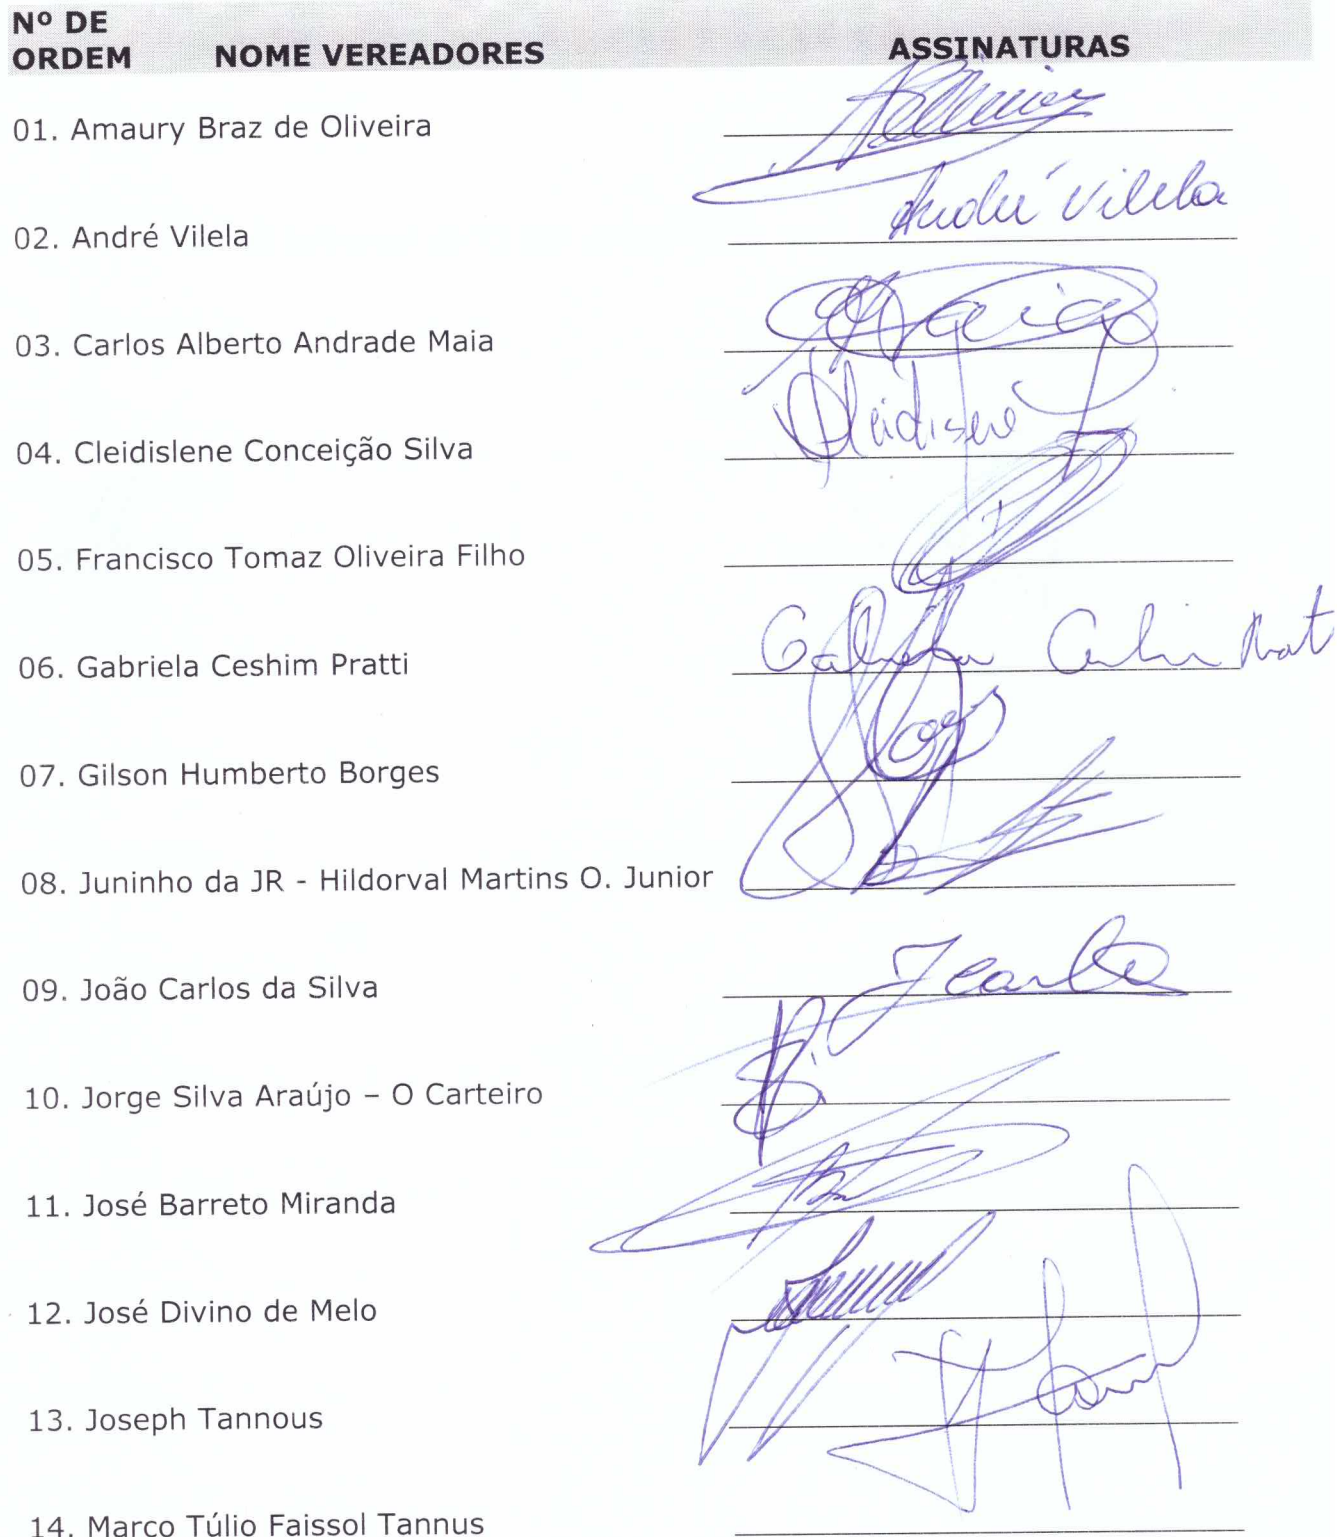 Nº DE
ORDEM NOME VEREADORES ASSINATURAS
01. Amaury Braz de Oliveira
André Vilela
02. André Vilela
03. Carlos Alberto Andrade Maia
Cleidislene
04. Cleidislene Conceição Silva
05. Francisco Tomaz Oliveira Filho
06. Gabriela Ceshim Pratti Gabriela
07. Gilson Humberto Borges
08. Juninho da JR - Hildorval Martins O. Junior
09. João Carlos da Silva
10. Jorge Silva Araújo – O Carteiro
11. José Barreto Miranda
12. José Divino de Melo
13. Joseph Tannous
14. Marco Túlio Faissol Tannus